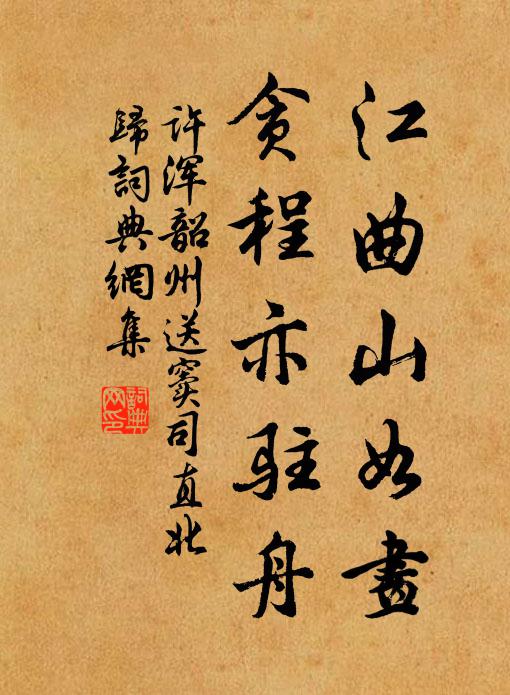 江曲山如畫
貪程亦駐舟
许渾韶州送竇司直北
歸詞典網集
詞典網印